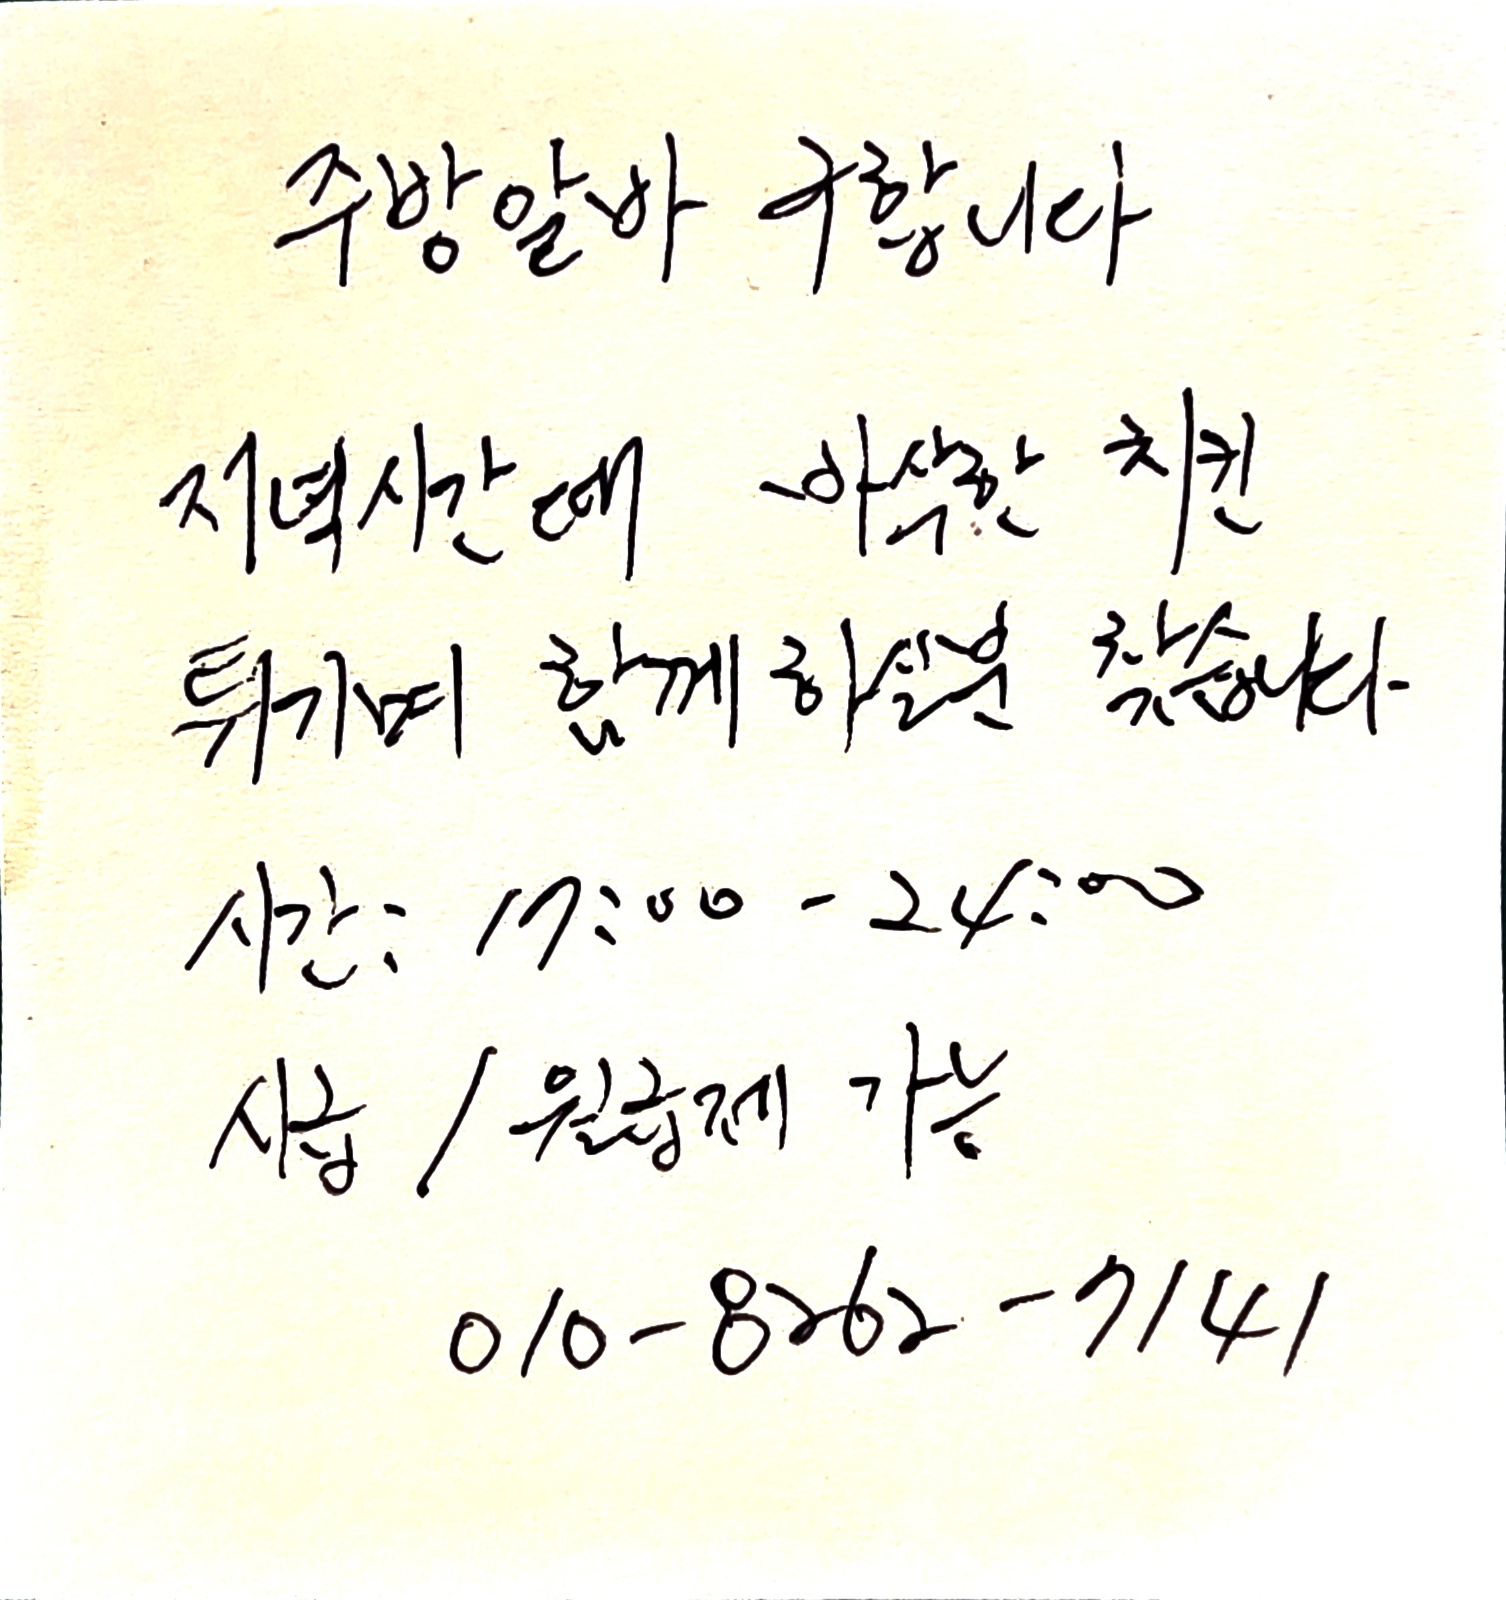 주방알바 구합니다
저녁시간때 바삭한 치킨
튀기며 함께하실분 찾습니다.
시간: 17:00 - 24:00
시급 / 월급제 가능
010-8262-7141